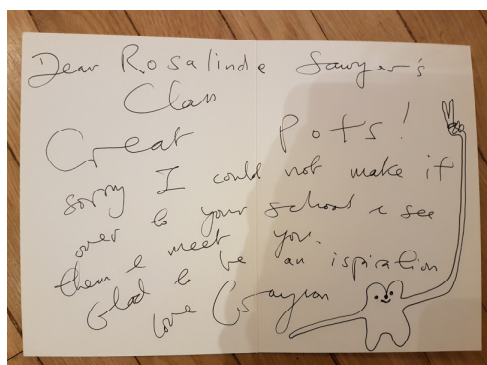 Dear Rosalinde Sawyer's
Class
Great Pots!
sorry I could not make it
over to your school & see
them & meet you.
Glad to be an ispiration
love Grayson